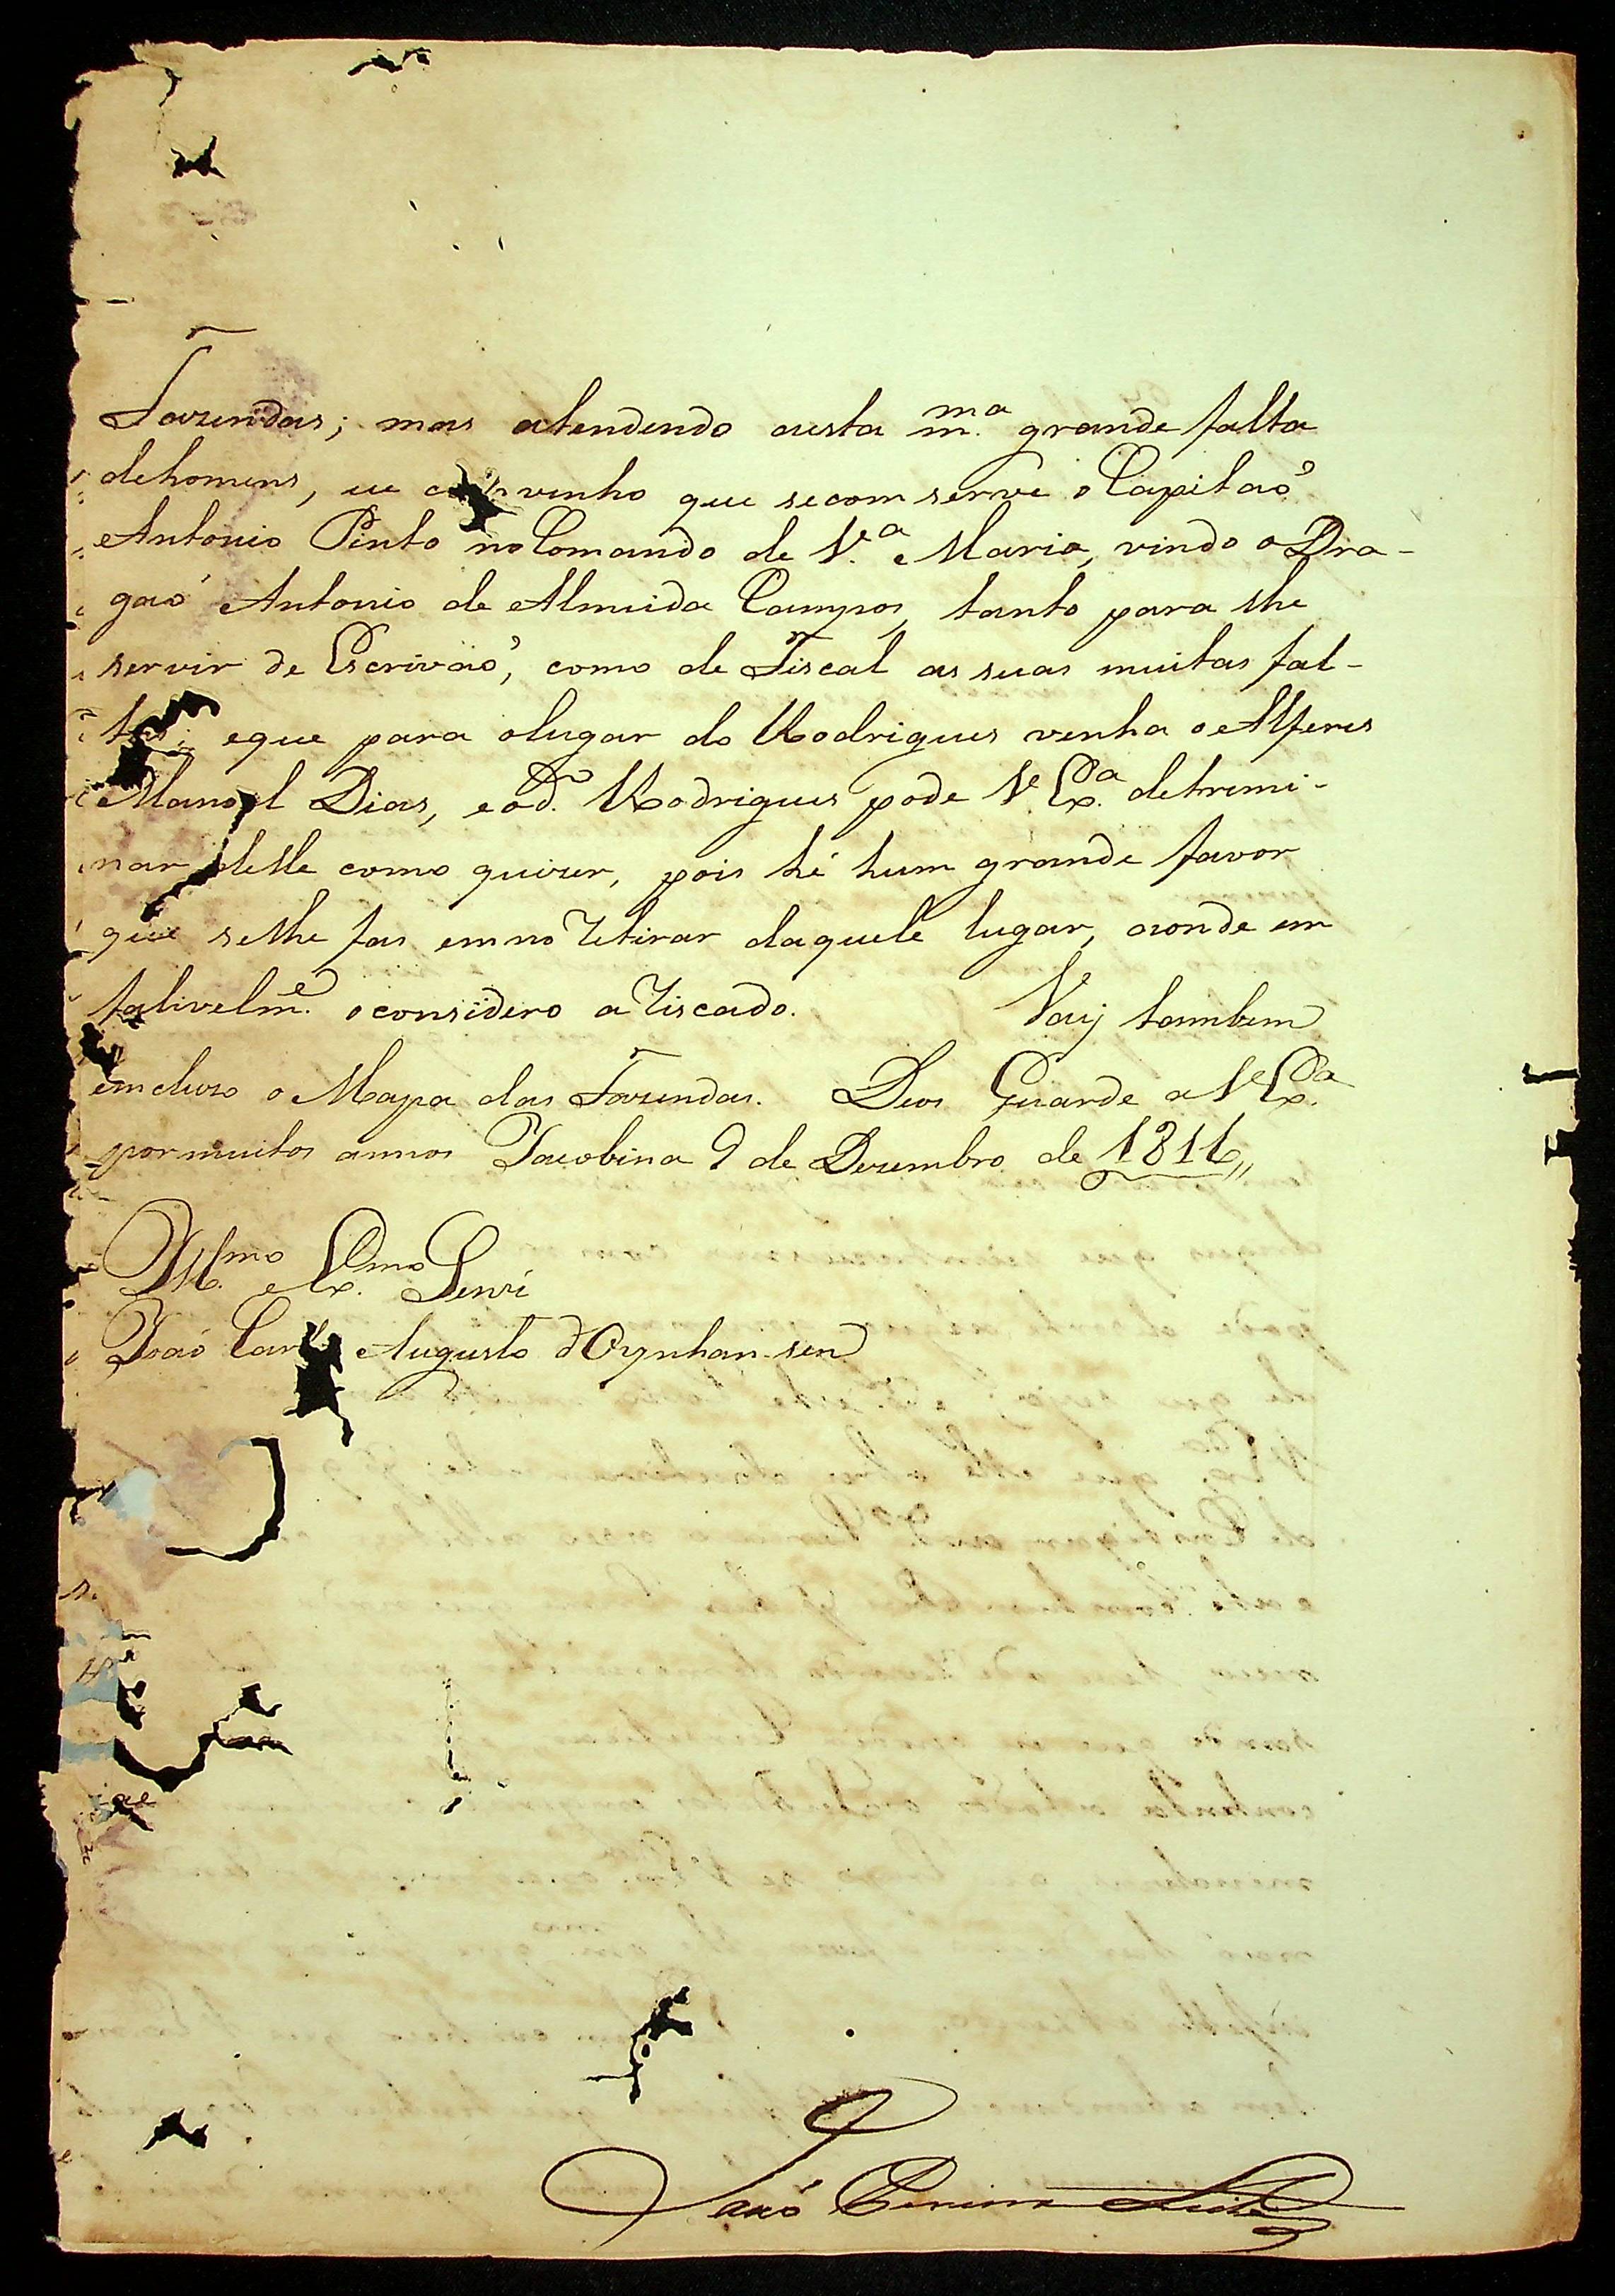 Fazendas; mas atendendo aesta m.ma grande falta
dehomens, eu convinho que secom serve o Capitaõ
Antonio Pinto no Comando de V.a Maria, vindo o Dra-
gaõ Antonio de Almeida Campos, tanto para lhe
servir de Escrivaõ, como de Fiscal as suas muitas fal-
tas; eque para olugar do Rodrigues venha o Alferes
Manoel Dias, eod.o Rodrigues pode V. Ex.a detremi-
nar delle como quizer, pois hé hum grande favor
que selhe fas emno Retirar daquele lugar, aonde em
falivelm.e oconsidero aRiscado. Vaij tambem
emcluzo o Mapa das Fazendas. Deos Guarde a V Ex.a
pormuitos annos Jacobina 9 de Dezembro de 1811,,
Ill.mo e Ex.mo Senr
Joaõ Carlos Augusto d'Oynhausen
Joaõ Pereira Leite